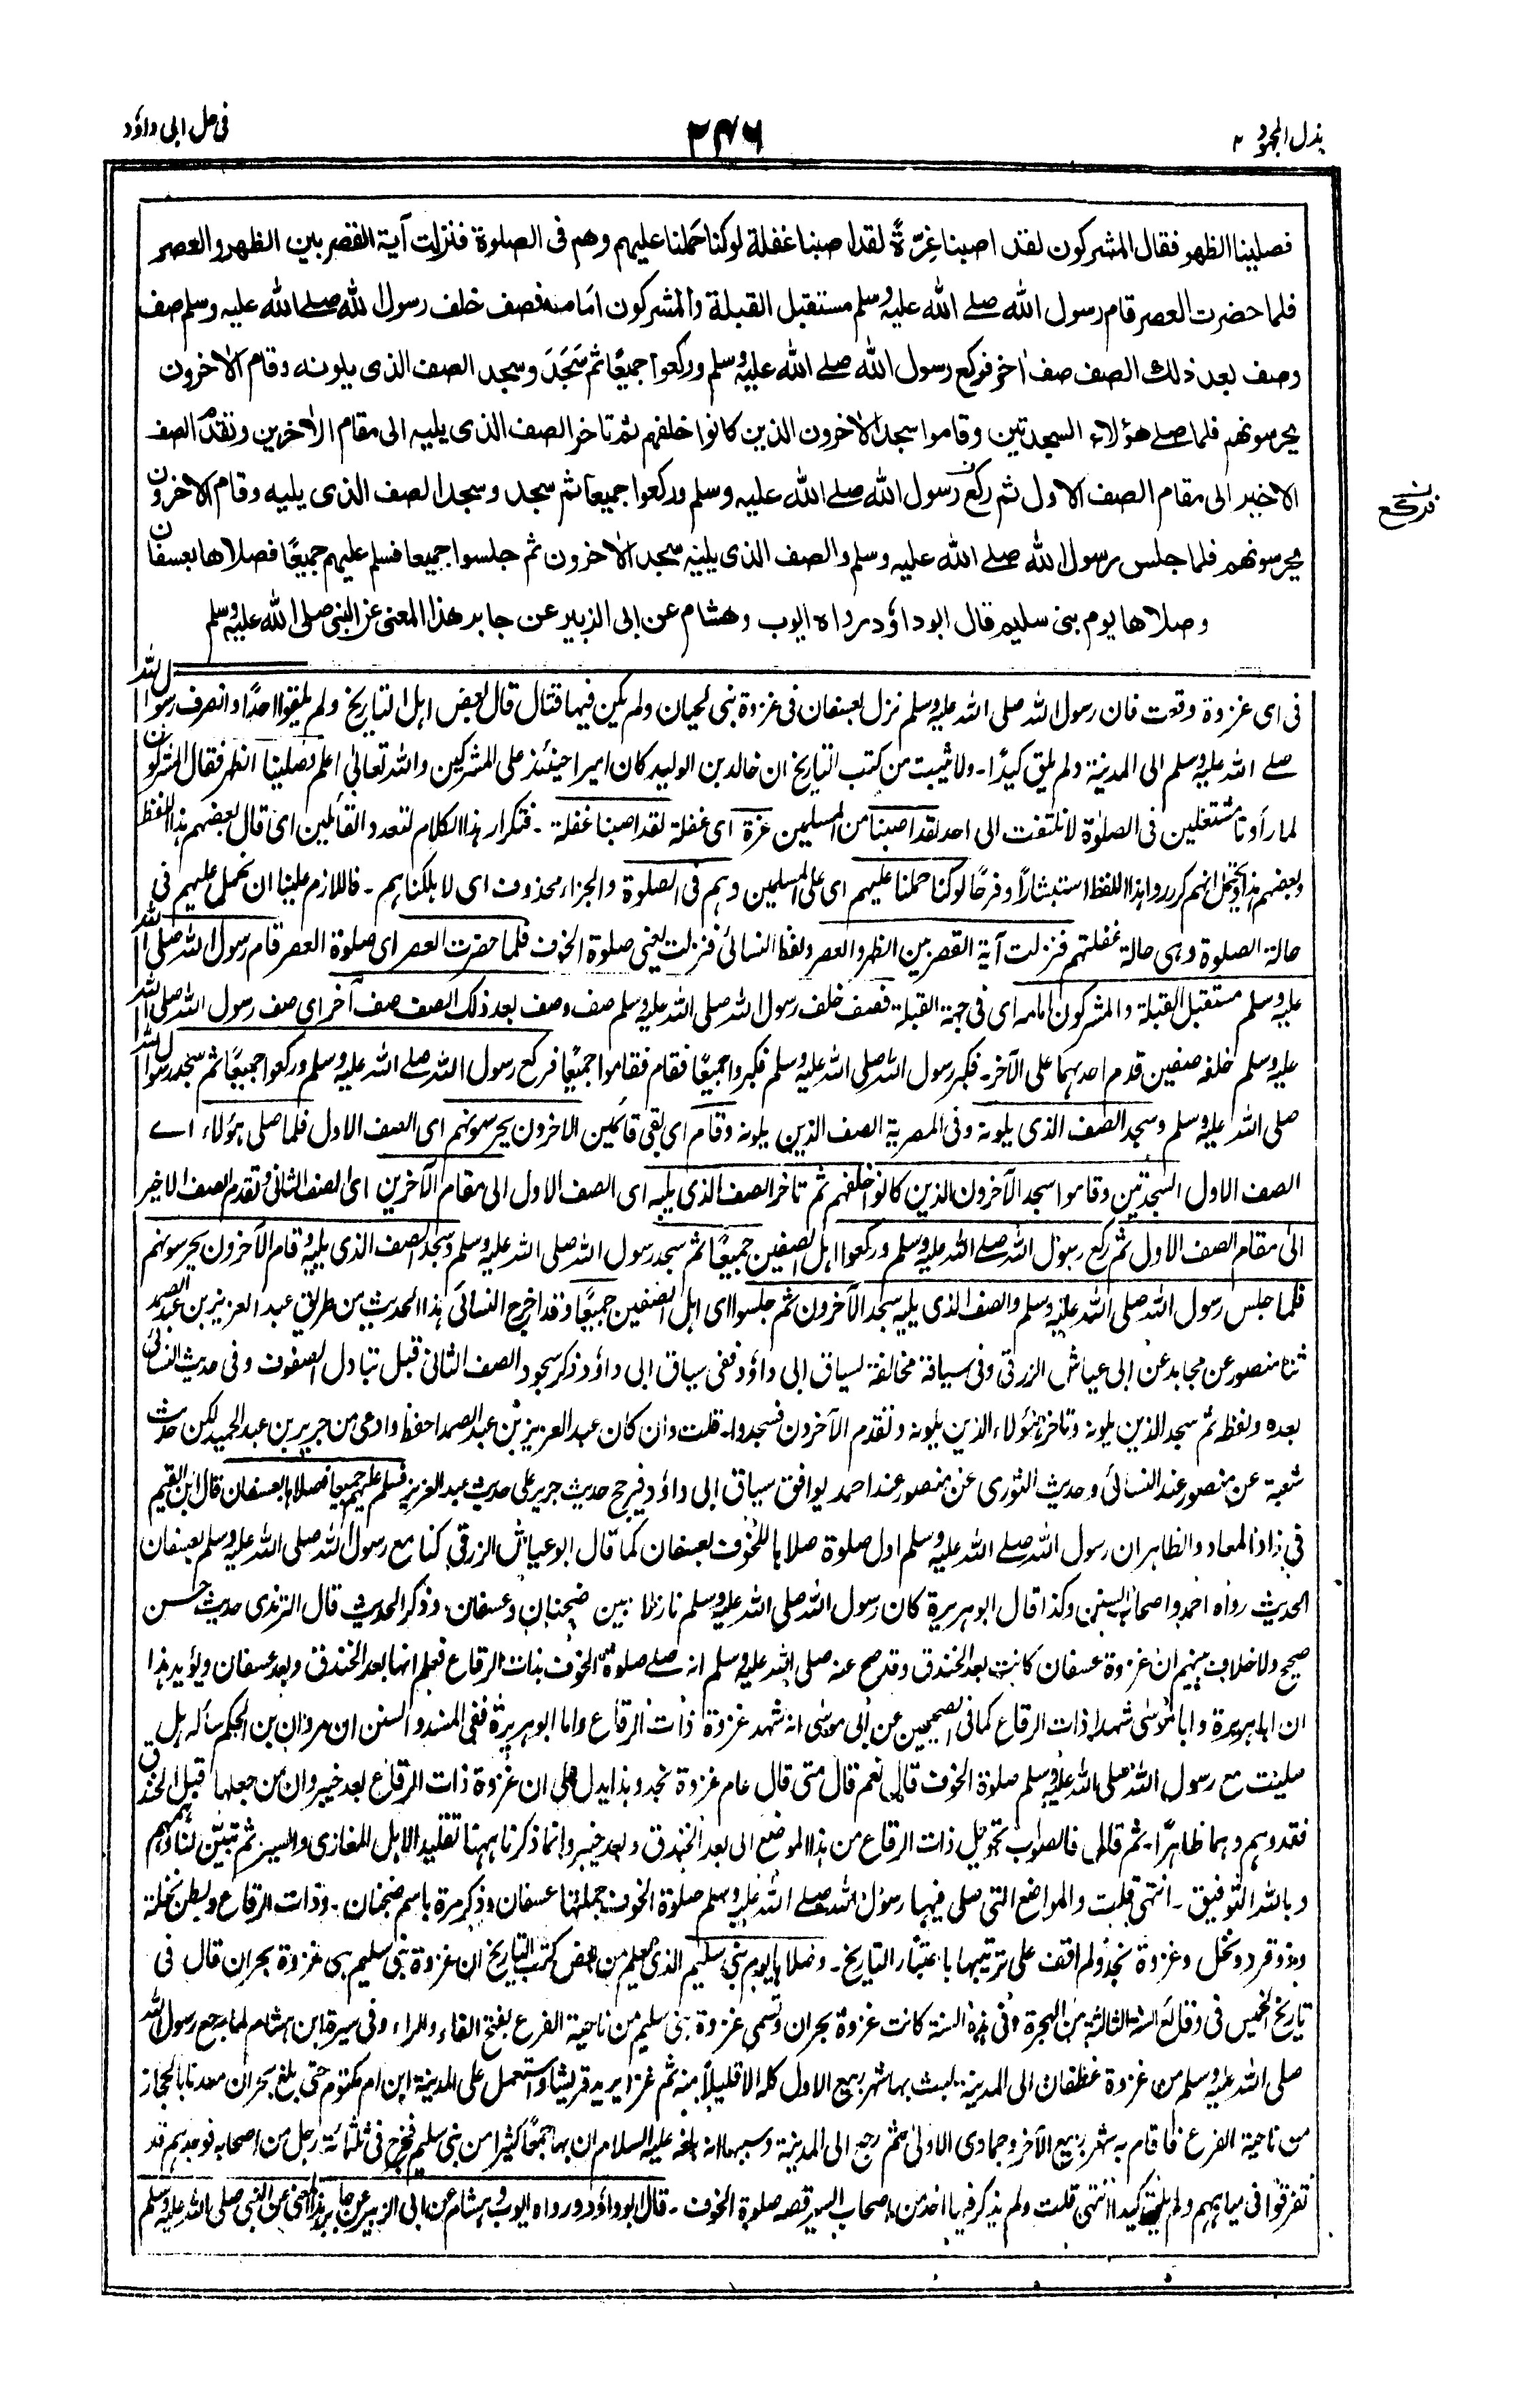 بذل المجهود ٢
٢٤٦
فى حل ابى داؤد
فصلينا الظهر فقال المشركون لقد اصبنا غِرّةً لقد اصبنا غفلة لو كنا حَملنا عليهم وهم فى الصلوة فنزلت آية القصر بين الظهر والعصر
فلما حضرت العصر قام رسول الله صلے الله عليه وسلم مستقبل القبلة والمشركون امامه فصف خلف رسول الله صلے الله عليه وسلم صف
وصف بعد ذلك الصف صف اٰخر فركع رسول الله صلے الله عليه وسلم وركعوا جميعًا ثم سَجَدَ وسجد الصف الذى يلونه وقام الاٰخرون
يحرسونهم فلما صلے هؤلاء السجدتين وقاموا سجد الاٰخرون الذين كانوا خلفهم ثم تاخر الصف الذى يليه الى مقام الاٰخرين وتقدّم الصف
الاخير الى مقام الصف الاول ثم ركع رسول الله صلے الله عليه وسلم وركعوا جميعا ثم سجد وسجد الصف الذى يليه وقام الاٰخرون
فركع
يحرسونهم فلما جلس رسول الله صلے الله عليه وسلم والصف الذى يليه سجد الاٰخرون ثم جلسوا جميعا فسلم عليهم جميعًا فصلاها بعسفان
وصلاها يوم بنى سليم قال ابو داؤد رواه ايوب وهشام عن ابى الزبير عن جابر هذا المعنى عن النبى صلى الله عليه وسلم
فى اى غزوة وقعت فان رسول الله صلى الله عليه وسلم نزل بعسفان فى غزوة بنى لحيان ولم يكن فيها قتال قال بعض اهل التاريخ ولم يلقوا احدًا وانصرف رسول الله
صلے الله عليه وسلم الى المدينة ولم يلق كيدًا۔ ولا ثيبت من كتب التاريخ ان خالد بن الوليد كان اميرا حينئذ على المشركين والله تعالىٰ اعلم فصلينا الظهر فقال المشركون
لما رأونا مشتغلين فى الصلوٰة لا نلتفت الى احد لقد اصبنا من المسلمين غرة اى غفلة لقد اصبنا غفلة ۔ فتكرار هذا الكلام لتعدد القائلين اى قال بعضهم هذا اللفظ
وبعضهم هذا ويحتمل انهم كرروا هذا اللفظ استبشارًا وفرحًا لو كنا حملنا عليهم اى على المسلمين وهم فى الصلوة والجزاء محذوف اى لاهلكناهم ۔ فاللازم علينا ان نحمل عليهم فى
حالة الصلوة وهى حالة غفلتهم فنزلت آية القصر بين الظهر والعصر ولفظ النسائى فنزلت يعنى صلوة الخوف فلما حضرت العصر اى صلوة العصر قام رسول الله صلى الله
عليه وسلم مستقبل القبلة والمشركون امامه اى فى جهة القبلة فصف خلف رسول الله صلى الله عليه وسلم صف وصف بعد ذلك الصف صف آخر اى صف رسول الله صلى الله
عليه وسلم خلفه صفين قدم احدهما على الآخر۔ فكبر رسول الله صلى الله عليه وسلم فكبروا جميعًا فقام فقاموا جميعًا فركع رسول الله صلے الله عليه وسلم وركعوا جميعًا ثم سجد رسول الله
صلى الله عليه وسلم وسجد الصف الذى يلونه وفى المصرية الصف الذين يلونه وقام اى بقى قائمين الاٰخرون يحرسونهم اى الصف الاول فلما صلى هؤلاء اے
الصف الاول السجدتين وقاموا سجد الآخرون الذين كانوا خلفهم ثم تاخر الصف الذى يليه اى الصف الاول الى مقام الآخرين اى الصف الثانى وتقدم الصف الاخير
الىٰ مقام الصف الاول ثم ركع رسول الله صلے الله عليه وسلم وركعوا اهل الصفين جميعًا ثم سجد رسول الله صلى الله عليه وسلم وسجد الصف الذى يليه وقام الآخرون يحرسونهم
فلما جلس رسول الله صلى الله عليه وسلم والصف الذى يليه سجد الآخرون ثم جلسوا اى اهل الصفين جميعًا وقد اخرج النسائى هذا الحديث من طريق عبد العزيز بن عبد الصمد
ثنا منصور عن مجاهد عن ابى عياش الزرقى وفى سياقه مخالفة لسياق ابى داؤد ففى سياق ابى داؤد ذكر سجود الصف الثانى قبل تبادل الصفوف وفى حديث النسائى
بعده ولفظه ثم سجد الذين يلونه وتاخر هؤلاء الذين يلونه وتقدم الآخرون فسجدوا۔ قلت وان كان عبد العزيز بن عبد الصمد احفظ واوعى من جرير بن عبد الحميد لكن حديث
شعبة عن منصور عند النسائى وحديث الثورى عن منصور عند احمد يوافق سياق ابى داؤد فيرجح حديث جرير على حديث عبد العزيز فسلم عليهم جميعا فصلاها بعسفان قال ابن القيم
فى زاد المعاد والظاهر ان رسول الله صلے الله عليه وسلم اول صلوة صلاها للخوف بعسفان كما قال ابو عياش الزرقى كنا مع رسول الله صلى الله عليه وسلم بعسفان
الحديث رواه احمد واصحاب السنن وكذا قال ابو هريرة كان رسول الله صلى الله عليه وسلم نازلا بين ضجنان وعسفان وذكر الحديث قال الترمذى حديث حسن
صحيح ولا خلاف بينهم ان غزوة عسفان كانت بعد الخندق وقد صح عنه صلى الله عليه وسلم انه صلے صلوة الخوف بذات الرقاع فعلم انها بعد الخندق وبعد عسفان ويؤيد هذا
ان ابا هريرة وابا موسٰى شهدا ذات الرقاع كما فى الصحيحين عن ابى موسٰى انه شهد غزوة ذات الرقاع واما ابو هريرة ففى المسند والسنن ان مروان بن الحكم سأله هل
صليت مع رسول الله صلى الله عليه وسلم صلوة الخوف قال نعم قال متى قال عام غزوة نجد وهذا يدل على ان غزوة ذات الرقاع بعد خيبر وان من جعلها قبل الخندق
فقد وهم وهما ظاهرًا۔ ثم قال فالصواب تحويل ذات الرقاع من هذا الموضع الى بعد الخندق وبعد خيبر وانما ذكرنا ههنا تقليدا لاهل المغازى والسير ثم تبيّن لنا وهمهم
وبالله التوفيق ۔ انتهى قلت والمواضع التى صلى فيها رسول الله صلے الله عليه وسلم صلوة الخوف جملتها عسفان وذكر مرة باسم ضجنان ۔ وذات الرقاع وبطن نخلة
وذو قرد ونخل وغزوة نجد ولم اقف على ترتيبها باعتبار التاريخ ۔ وصلاها يوم بنى سليم الذى يعلم من بعض كتب التاريخ ان غزوة بنى سليم هى غزوة بحران قال فى
تاريخ الخميس فى وقائع السنة الثالثة من الهجرة وفى هذه السنة كانت غزوة بحران وتسمى غزوة بنى سليم من ناحية الفرع بفتح الفاء والراء وفى سيرة ابن هشام لما رجع رسول الله
صلى الله عليه وسلم من غزوة غطفان الى المدينة لبث بها شهر ربيع الاول كله الا قليلًا منه ثم غزا يريد قريشا واستعمل على المدينة ابن ام مكتوم حتى بلغ بحران معدنا بالحجاز
من ناحية الفرع فاقام به شهر ربيع الآخر وجمادى الاولىٰ ثم رجع الى المدينة وسببها انه بلغه عليه السلام ان بها جمعًا كثيرا من بنى سليم فخرج فى ثلثمائة رجل من اصحابه فوجدهم قد
تفرقوا فى مياههم ولم يلق كيدا انتهى قلت ولم يذكر فيه احد من اصحاب السير قصة صلوة الخوف ۔ قال ابو داؤد ورواه ايوب وهشام عن ابى الزبير عن جابر هذا المعنى عن النبى صلى الله عليه وسلم